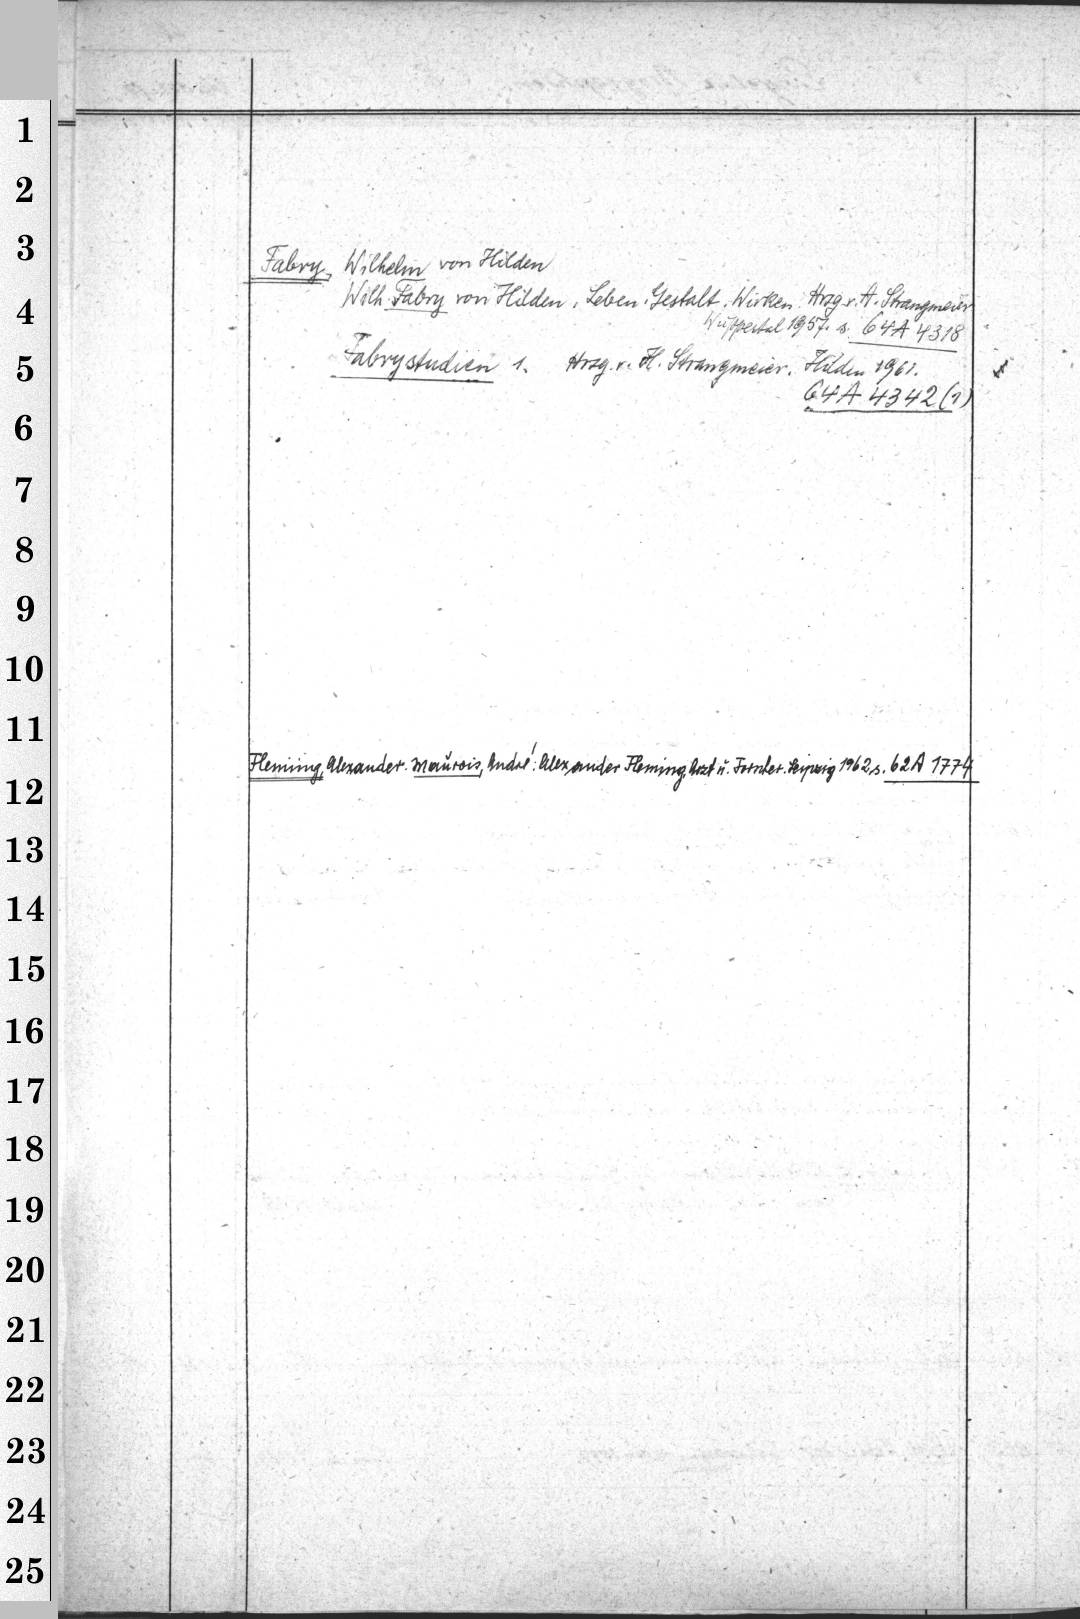 1
2
3
Fabry, Wilhelm von Hilden
4
Wilh. Fabry von Hilden. Leben. Gestalt. Wirken. Hrzg. v. H. Strangmeier
Wuppertal 1957. s. 64A 4318
5
Fabrystudien 1. Hrzg. v. H. Strangmeier. Hilden 1961.
64A 4342(1)
6
7
8
9
10
11
Fleming, Alexander. Maurois, André: Alexander Fleming, Arzt u. Forscher. Leipzig 1962 s. 62A 1774
12
13
14
15
16
17
18
19
20
21
22
23
24
25